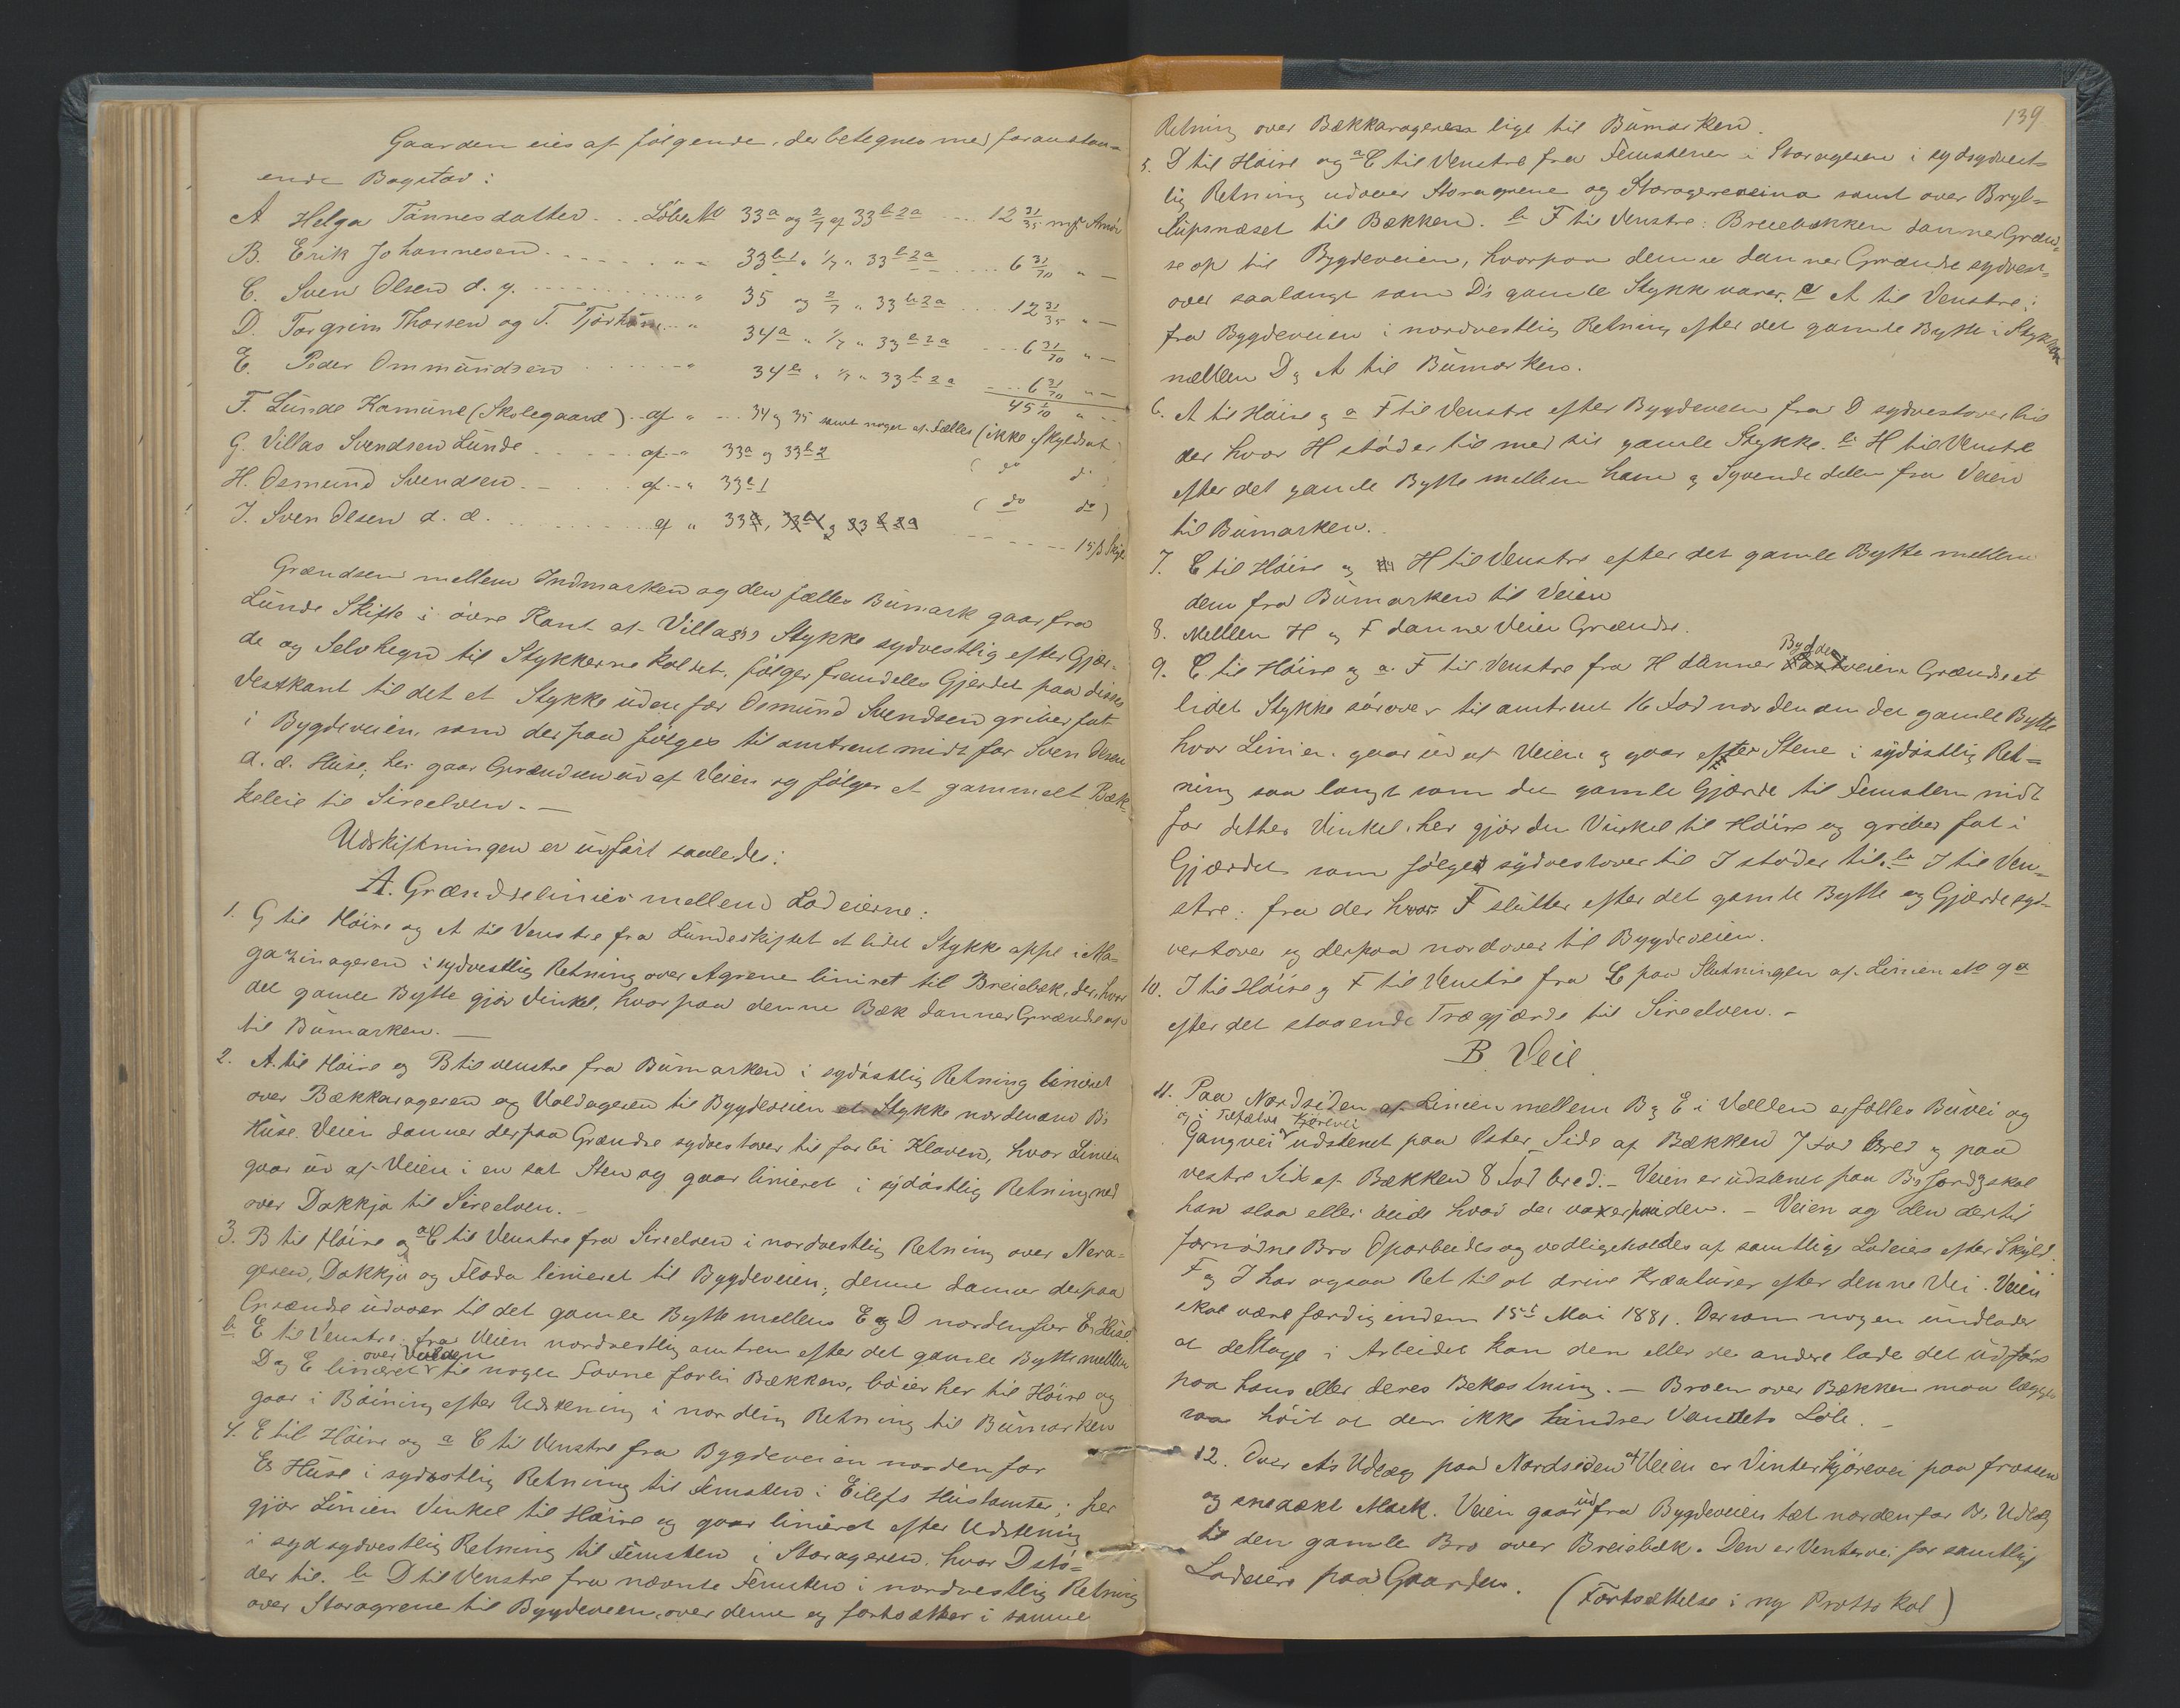 Gaarden eies af følgende, der betegnes med foranstaa-
ende Bogstav:
A Helga Tønnesdatter . . Løbe № 33a og 2/7 af 33b2a . . . 12 31/35 mrk Smør
B. Erik Johannesen . . . . „ 33b1 „ 1/7 „ 33b2a . . . . 6 31/70 „ —
C. Sven Olsen d. y. . . . . „ 35 og 2/7 „ 33b2a . . . . 12 31/35 „ —
D. Torgrim Thorsen og T. Tjørhom . . „ 34a „ 1/7 „ 33b2a . . . 6 31/70 „ —
E. Peder Ommundsen . . . . „ 34b „ 1/7 „ 33b2a . . . 6 31/70 „ —
45 1/10 „ —
F. Lunde Komune (Skolegaard) . . af „ . . 34 og 35 samt noget af Fælles (ikke skyldsat)
G. Villas Svendsen Lunde . . . . af „ 33a og 33b2 ( do do )
H. Osmund Svendsen . — . . . af „ 33b1 ( do do )
I. Sven Olsen d. æ. . . . . . af „ 33a, 33b1 og 33b2a . . . . — 15 ß Skyld
Grændsen mellem Indmarken og den fælles Bumark gaar fra
Lunde Skifte i øvre Kant af Villas's Stykke sydvestlig efter Gjær-
de og Selvhegn til Stykkerne Koldet, følger fremdeles Gjerdet paa disses
Vestkant til det et Stykke udenfor Osmund Svendsen griber fat
i Bygdeveien, som derpaa følges til omtrent midt for Sven Olsen
d. æ. Huse; her gaar Grændsen ud af Veien og følger et gammelt Bæk-
keleie til Sireelven. —
Udskiftningen er udført saaledes:
A. Grændselinier mellem Lodeierne:
1. G til Høire og A til Venstre fra Lundeskiftet et lidet Stykke oppe i Ma-
gazinageren i sydvestlig Retning over Agrene liniret til Breiebæk, der, hvor
det gamle Bytte gjør Vinkel, hvorpaa denne Bæk danner Grændse op
til Bumarken. —
2. A til Høire og B til venstre fra Bumarken i sydøstlig Retning liniret
over Bækkarageren og Voldageren til Bygdeveien et Stykke nordenom B's
Huse. Veien danner derpaa Grændse sydvestover til forbi Kloven, hvor Linien
gaar ud af Veien i en sat Sten og gaar linieret i sydøstlig Retning ned
over Dokkja til Sireelven. —
3. B til Høire og a E til Venstre fra Sireelven i nordvestlig Retning over Nera-
geren, Dokkja og Floda linieret til Bygdeveien; denne danner derpaa
Grændse udover til det gamle Bytte mellem E og D nordenfor E's Huse.
b E til Venstre: fra Veien nordvestlig omtrent efter det gamle Bytte mellem
D og E linieret over Volden til nogen Favne forbi Bækken, bøier her til Høire og
gaar i Bøining efter Udstening i nordlig Retning til Bumarken
4. E til Høire og a C til Venstre fra Bygdeveien nordenfor
E's Huse i sydøstlig Retning til Femsten i Eilefs Hustomter; her
gjør Linien Vinkel til Høire og gaar linieret efter Udstening
i sydsydvestlig Retning til Femsten i Storageren, hvor D stø-
der til. b D til Venstre fra nævnte Femsten i nordvestlig Retning
over Storagrene til Bygdeveien, over denne og fortsætter i samme
139
Retning over Bækkarageren lige til Bumarken.
5. D til Høire og a C til Venstre fra Femstenen i Storageren i sydsydvest-
lig Retning udover Storagrene og Storagerreina samt over Bryl-
lupsnæset til Bækken. b F til Venstre: Breiebækken danner Grænd-
se op til Bygdeveien, hvorpaa denne danner Grændse sydvest-
over saalangt som D's gamle Stykke varer. c A til Venstre:
fra Bygdeveien i nordvestlig Retning efter det gamle Bytte i Stykket
mellem D og A til Bumarken.
6. A til Høire og a F til Venstre efter Bygdeveien fra D sydvestover til
der hvor H støder til med sit gamle Stykke. b H til Venstre
efter det gamle Bytte mellem ham og Syvendedelen fra Veien
til Bumarken.
7. C til Høire og H til Venstre efter det gamle Bytte mellem
dem fra Bumarken til Veien
8. Mellem H og F danner Veien Grændse.
9. C til Høire og a. F til Venstre fra H danner Bygdeveien Grændse et
lidet Stykke sørover til omtrent 16 Fod nordenom det gamle Bytte
hvor Linien gaar ud af Veien og gaar efter Stene i sydøstlig Ret-
ning saa langt som det gamle Gjærde til Femsten midt
for dettes Vinkel; her gjør den Vinkel til Høire og griber fat i
Gjærdet som følges sydvestover til I støder til. b I til Ven-
stre: fra der hvor F slutter efter det gamle Bytte og Gjærde syd-
vestover og derpaa nordover til Bygdeveien.
10. I til Høire og F til Venstre fra C paa Slutningen af Linien № 9a
efter det staaende Trægjærde til Sireelven. —
B. Veie
11. Paa Nordsiden af Linien mellem B og E i Vollen er fælles Buvei og
Gangvei og i Tilfælde Kjørevei udstenet paa Øster Side af Bækken 7 Fod bred og paa
vestre Side af Bækken 8 Fod bred. — Veien er udstenet paa B's Jord og skal
han slaa eller beide hvad der voxer paa den. — Veien og den dertil
fornødne Bro oparbeides og vedligeholdes af samtlige Lodeiere efter Skyld.
F og I har ogsaa Ret til at drive Kreaturer efter denne Vei. Veien
skal være færdig inden 15de Mai 1881. Dersom nogen undlader
at deltage i Arbeidet kan den eller de andre lade det udføre
paa hans eller deres Bekostning. — Broen over Bækken maa lægges
saa høit at den ikke hindrer Vandets Løb. —
12. Over A's Udlæg paa Nordsiden af Veien er Vinterkjørevei paa frossen
og snedækt Mark. Veien gaar ud fra Bygdeveien tæt nordenfor B's Udlæg
til den gamle Bro over Breiebæk. Den er Vintervei for samtlige
Lodeiere paa Gaarden.
(Fortsættelse i ny Protokol)